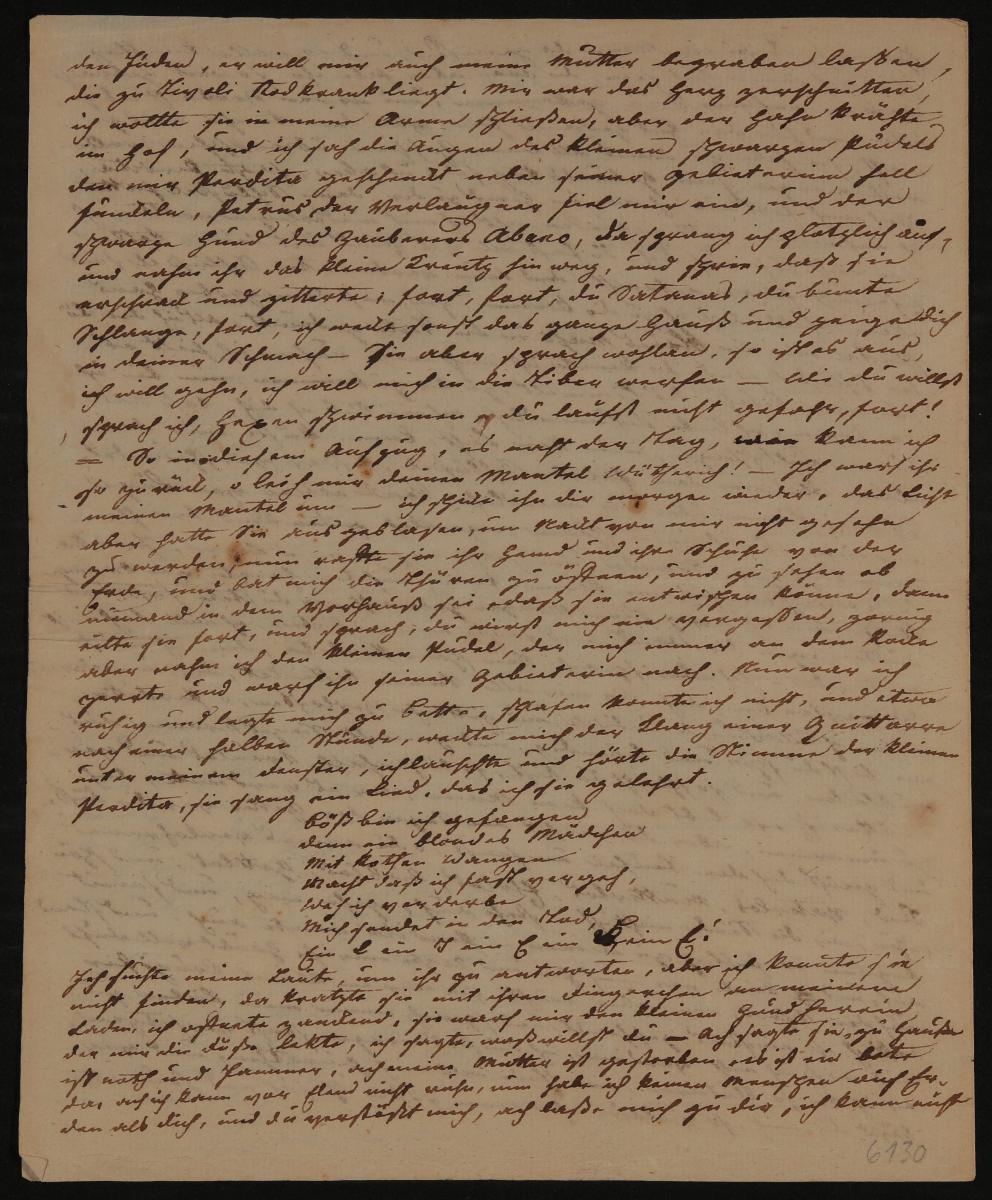 den Juden, er will mir auch meine Mutter begraben laßen,
die zu Tivoli Todkrank liegt. Mir war das Herz zerschnitten,
ich wollte sie in meine Arme schließen, aber der Hahn krähte
im Hof, und ich sah die Augen des kleinen schwarzen Pudels
den mir Perdita geschenkt neben seiner Gebieterinn hell
funkeln, Petrus der Verläugner fiel mir ein, und der
schwarze Hund des Zauberers Abano, da sprang ich plötzlich auf,
und nahm ihr das kleine Creutz hinweg, und schrie, daß sie
erschrack und zitterte; fort, fort, du Satanas, du bunte
Schlange, fort, ich wecke sonst das ganze Hauß und zeige dich
in deiner Schmach — Sie aber sprach wohlan, so ist es aus,
ich will gehn, ich will mich in die Tiber werfen — Wie du willst
sprach ich, Hexen schwimmen, du laufst nicht gefahr, fort!
— So in diesem Aufzug, es naht der Tag, wie kann ich
so zurück, o leih mir deinen Mantel Wütherich! — Ich warf ihr
meinen Mantel um — ich schicke ihn dir morgen wieder, das Licht
aber hatte Sie ausgeblasen, um Nackt von mir nicht gesehn
zu werden, nun raffte sie ihr Hemd und ihre Schuhe von der
Erde, und bat mich die Thüren zu öffnen, und zu sehen ob
niemand in dem Vorhauß sei, daß sie entwischen könne, dann
eilte sie fort, und sprach, du wirst mich nie vergeßen, zornig
aber nahm ich den kleinen Pudel, der mich immer an dem Rocke
zerrte und warf ihn seiner Gebieterinn nach. Nun war ich
ruhig und legte mich zu Bette, schlafen konnte ich nicht, und etwa
nach einer halben Stunde, weckte mich der Klang einer Guittarre
unter meinem Fenster, ich lauschte und hörte die Stimme der kleinen
Perdita, sie sang ein Lied, das ich sie gelehrt.
Böß bin ich gefangen
denn ein blondes Mädchen
Mit Rothen Wangen
Macht daß ich fast vergeh,
Weh ich verderbe
Mich sendet in den Tod,
Ein L ein I ein E ein E!
Ich suchte meine Laute, um ihr zu antworten, aber ich konnte sie
nicht finden, da kratzte sie mit ihren Fingerchen an meinem
Laden, ich öfnete zankend, sie warf mir den kleinen Hund herein
der mir die Füße lekte, ich sagte, waß willst du — Ach sagte sie, zu Hauße
ist noth und Jammer, ach meine Mutter ist gestorben
ach ich kann vor Elend nicht ruhn, nun habe ich keinen Menschen auf Er-
den als dich, und du verstößt mich, ach laße mich zu dir, ich kann nicht
6130